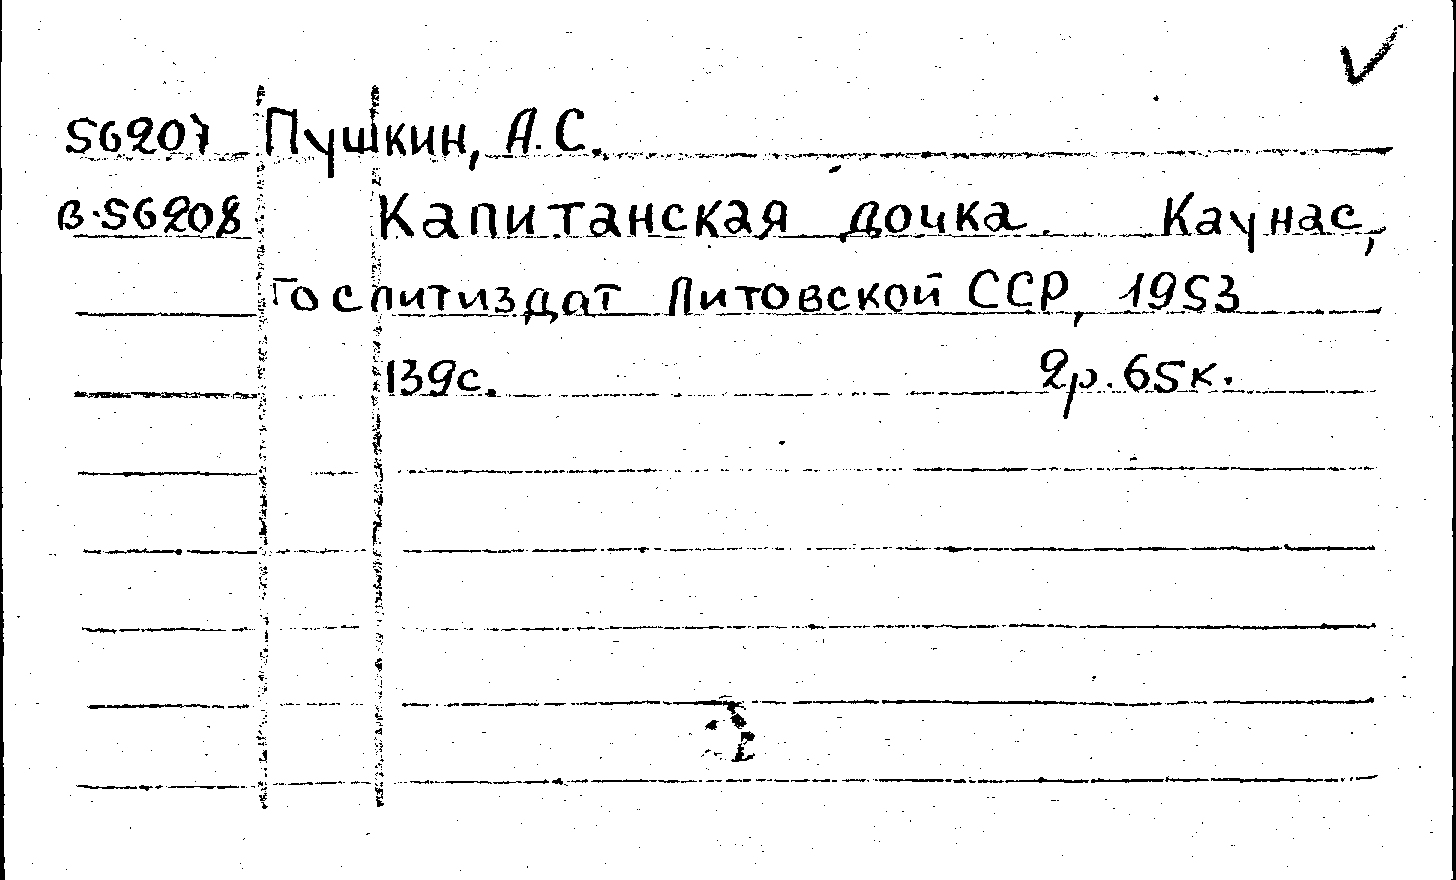 56207 Пушкин, А.С.
В-56208 Капитанская дочка. Каунас,
Гослитиздат Литовской ССР, 1953
139с. 2р.65к.